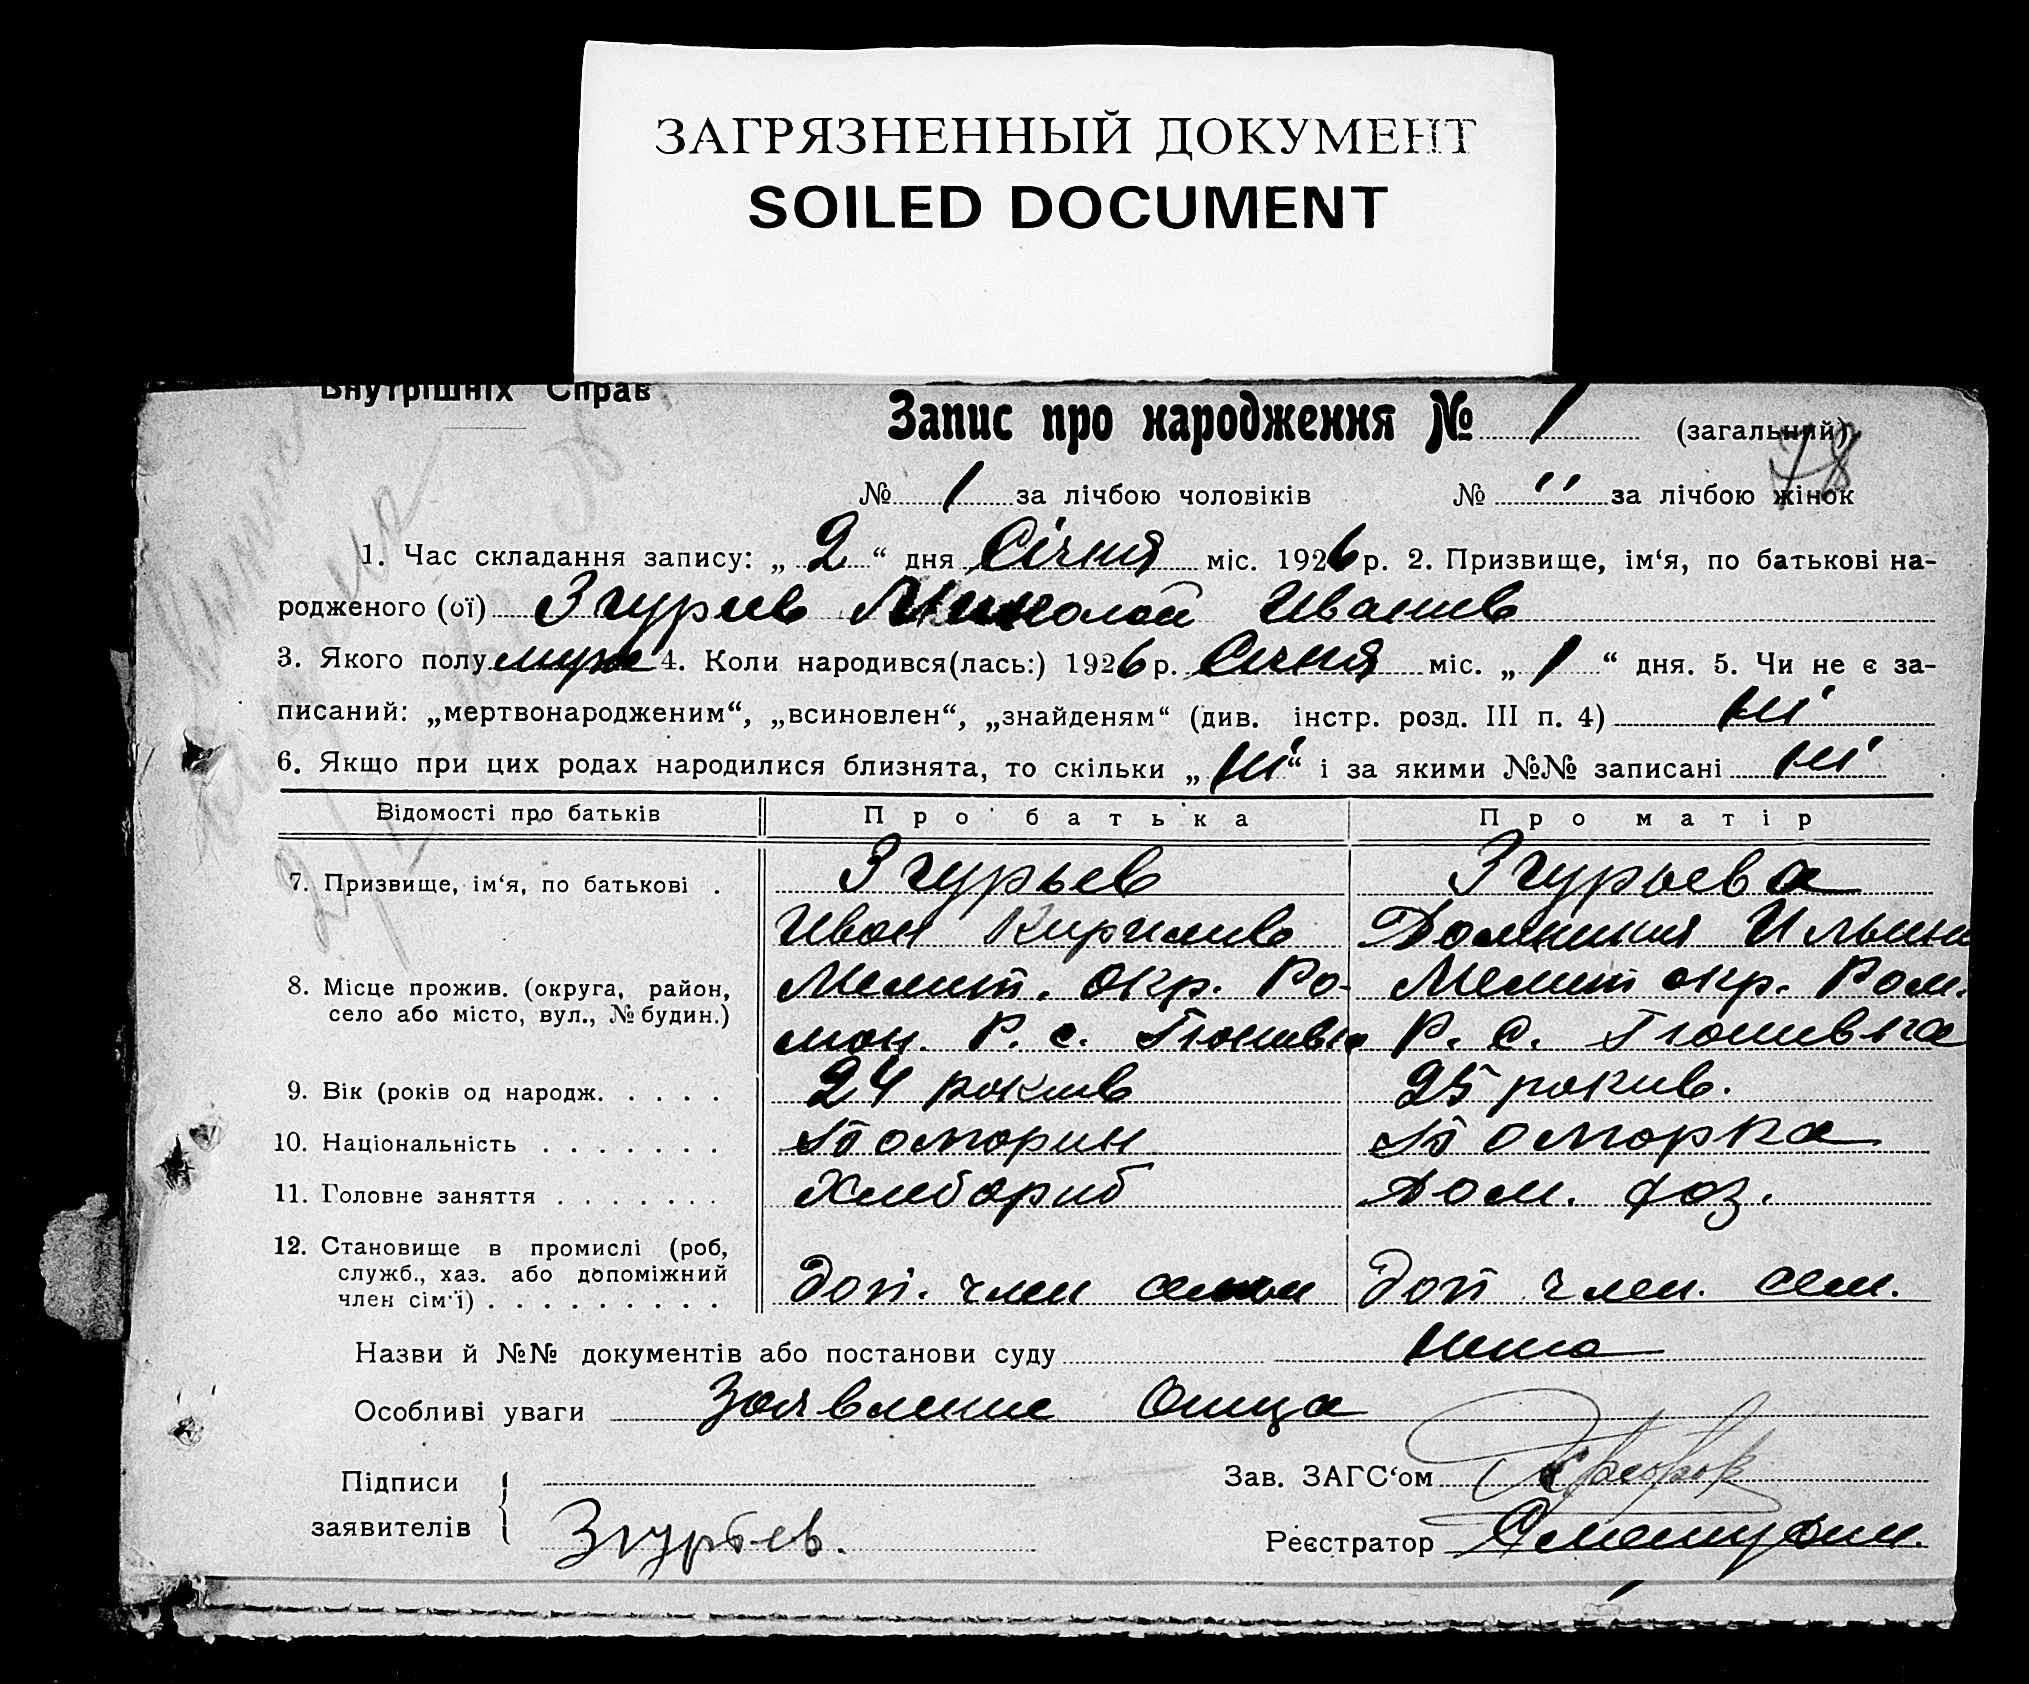 ЗАГРЯЗНЕННЫЙ ДОКУМЕНТ
SOILED DOCUMENT
Внутрішніх Справ
Запис про народження № 1 (загальний)
78
№ 1 за лічбою чоловіків № " за лічбою жінок
1. Час складання запису: „ 2 “ дня Січня міс. 1926 р. 2. Призвище, ім‘я, по батькові на-
родженого (ої) Згурьев Миколай Иванив
3. Якого полу муж 4. Коли народився(лась:) 1926 р. Січня міс. „ 1 “ дня. 5. Чи не є за-
писаний: „мертвонародженим“, „всиновлен“, „знайденям“ (див. інстр. розд. III п. 4) ні
6. Якщо при цих родах народилися близнята, то скільки „ ні “ і за якими №№ записані ні
Відомості про батьків Про батька Про матір
7. Призвище, ім‘я, по батькові . Згурьев Згурьева
Иван Кирилив Домникия Ильин
8. Місце прожив. (округа, район, Мелит. окр. Ро- Мелит окр. Ром.
село або місто, вул., № будин.) ман. Р. с. Гюнивка Р. С. Гюнивка
9. Вік (років од народж. . . . . 24 рокив 25 рокив.
10. Національність . . . . . . . Болгорин Болгорка
11. Головне заняття . . . . . . . Хлебориб Дом. хоз.
12. Становище в промислі (роб,
служб., хаз. або допоміжний
член сім‘ї) . . . . . . . . . доп. член семьи доп член. сем.
Назви й №№ документів або постанови суду нима
Особливі уваги Заявление Отца
Підписи
заявителів Згурьев.
Зав. ЗАГС‘ом
Реєстратор